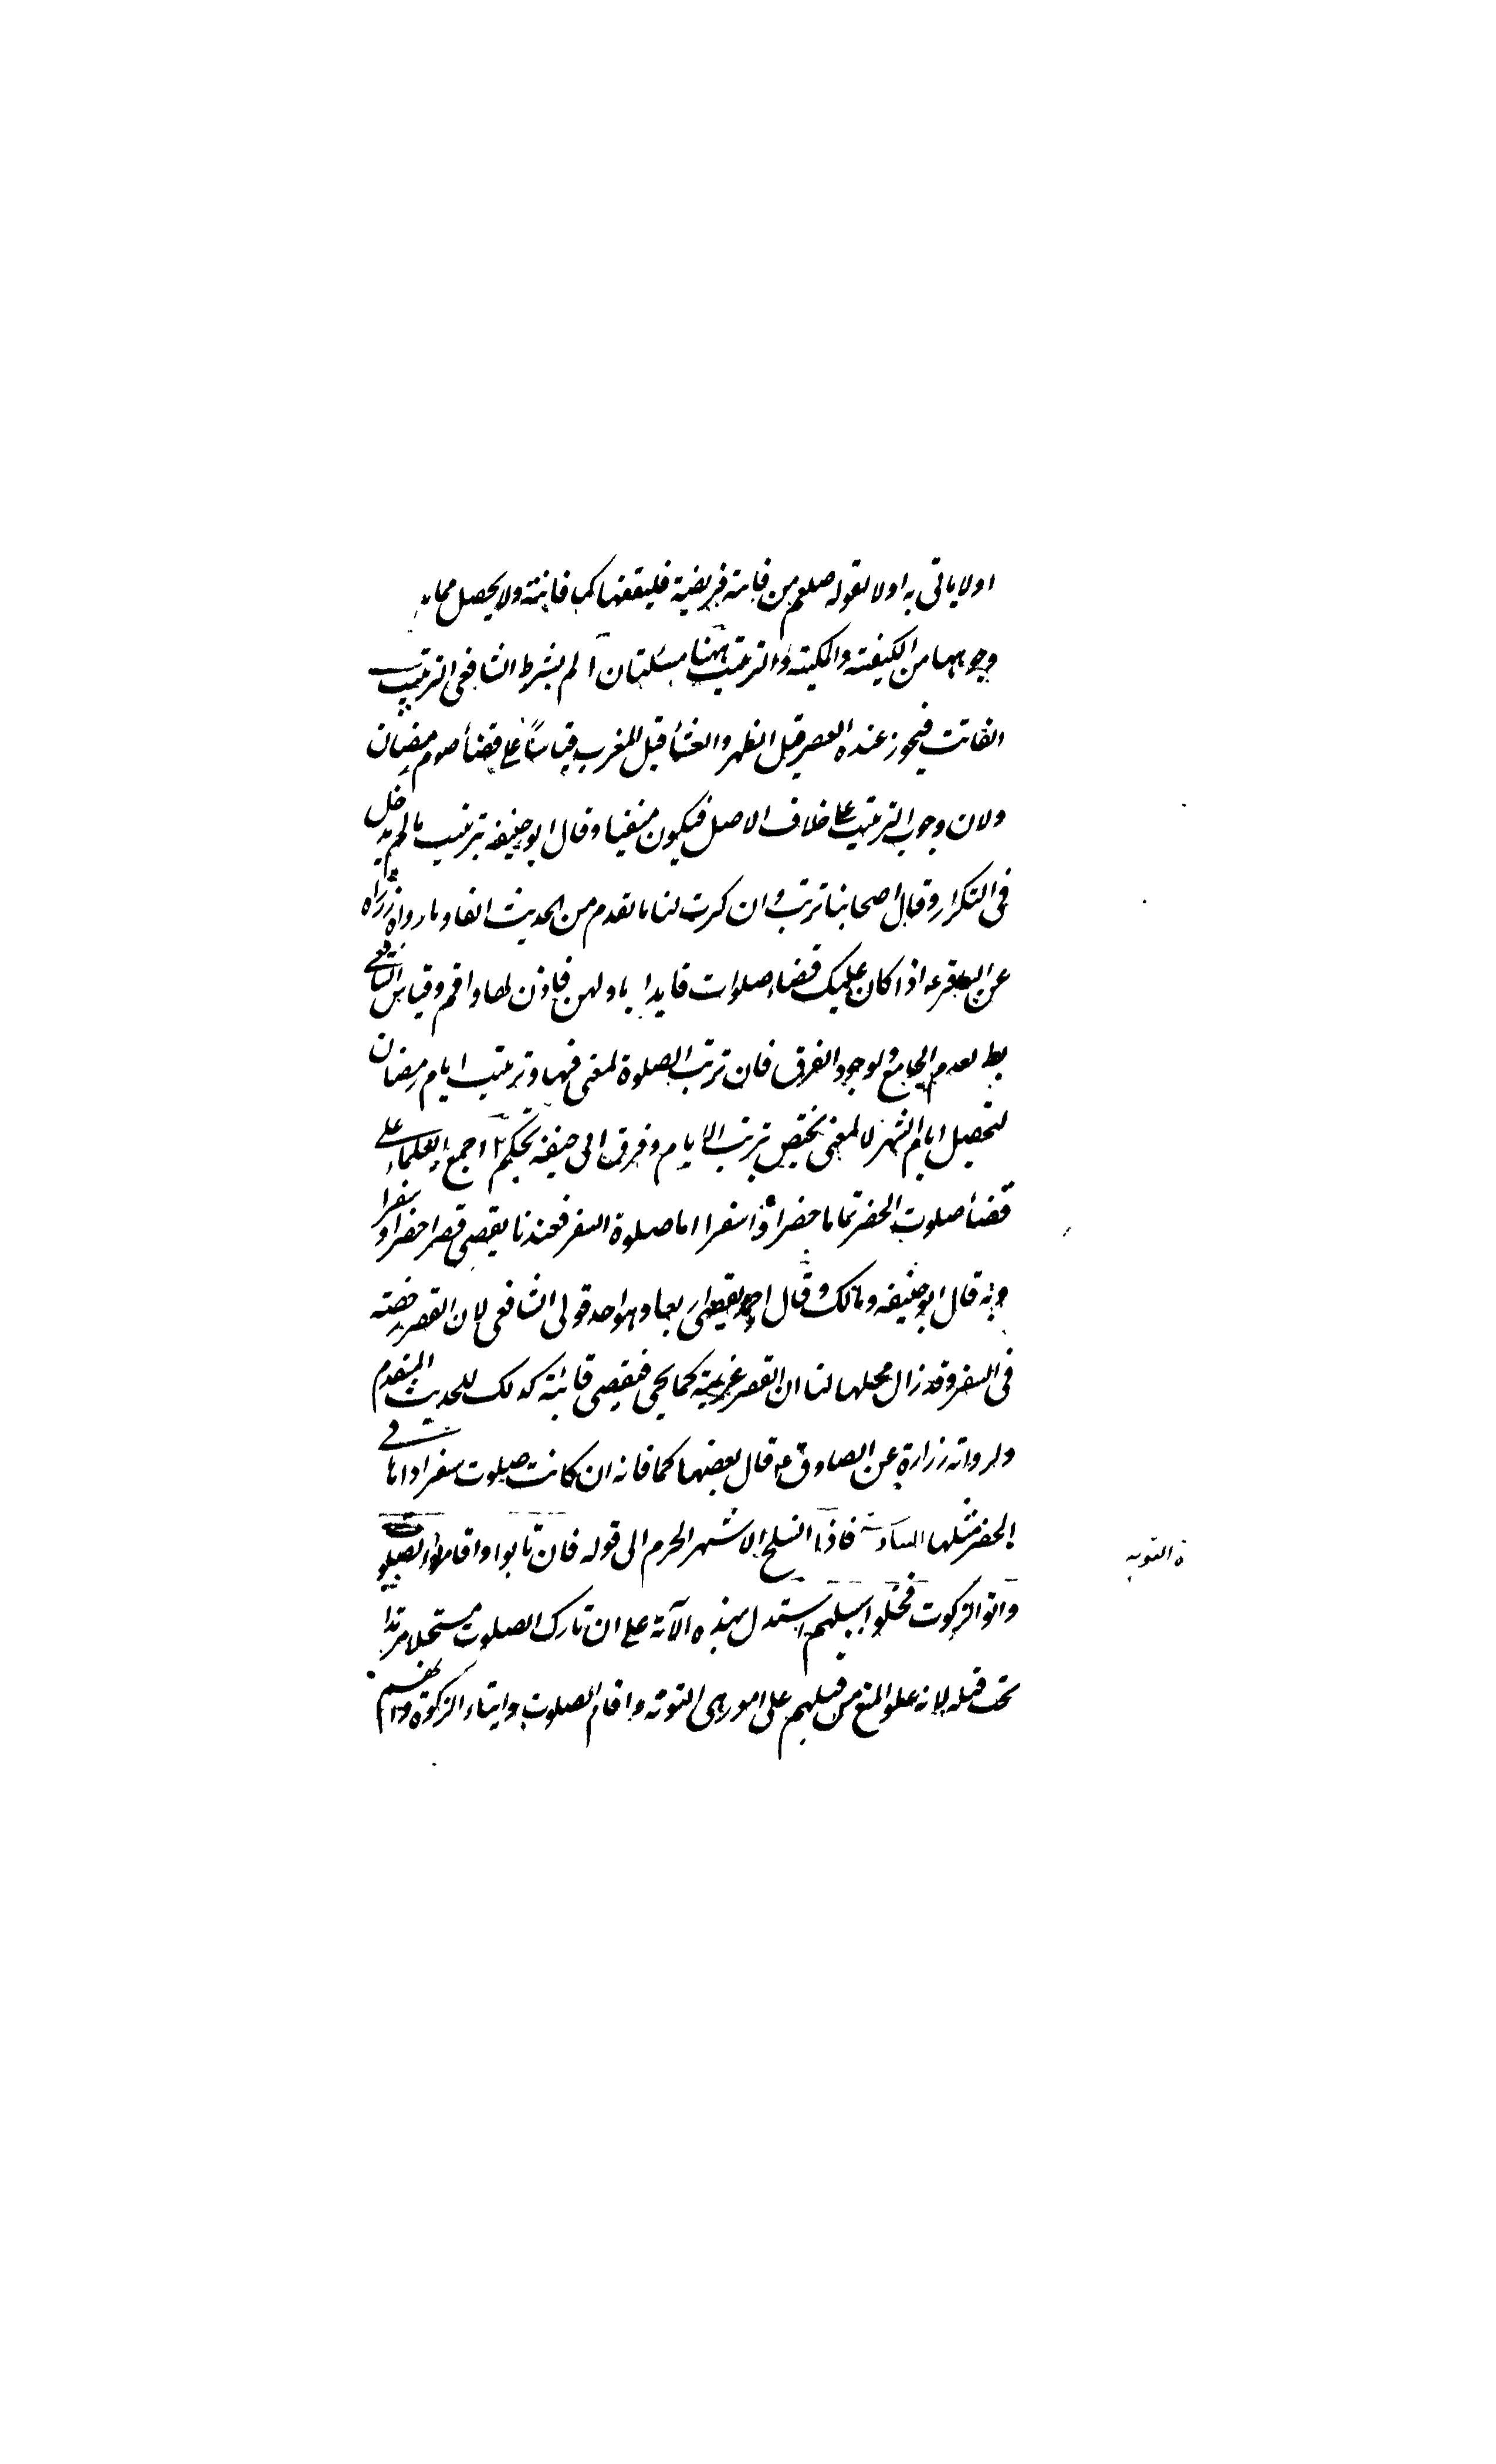 اولا ياتى به اولا لقوله صلعم من فاتته فريضة فليقضها كما فاتته ولا يحصل مماثله
وجوبها من الكيفية والكمية والترتيب ههنا مسئلتان ا لم يشرط الشافعى الترتيب
الفائت فيجوز عنده العصر قبل الظهر والعشأ قبل المغرب قياسًا على قضأ صوم رمضان
ولان وجوب الترتيب على خلاف الاصل فيكون منفيا وقال ابو حنيفه بترتيب ما لم يدخل
فى التكرار وقال اصحابنا ترتب وان كثرت لنا ما تقدم من الحديث انفا وما رواه زراره
عن الباقر ع اذا كان عليك قضاء صلوات فابدا باولهن فاذن لها واقم وقياس الشافعى
بط لعدم الجامع ولوجود الفرق فان ترتب الصلوة لمعنى فيها وترتيب ايام رمضان
لتحصيل ايام الشهر لا لمعنى يختص بترتب الايام وفرق ابى حنيفه تحكم ٢ اجمع العلماء على
قضأ صلوت الحضر تماما حضرا وسفرا اما صلوة السفر فعندنا يقضى قصرا حضرا وسفرا
وبه قال ابو حنيفه ومالك وقال احمد يقضى اربعا وهو احد قولى الشافعى لان القصر رخصته
فى السفر وقد زال محلها لنا ان القصر عزيمة كما يجى فيقضى فائتة كذلك للحديث المتقدم
ولرواته زرارة عن الصادق ع قال يقضيها كما فاته ان كانت صلوت سفر اداها فى
الحضر مثلها السادسة فاذا انسلخ الاشهر الحرم الى قوله فان تابوا واقاموا الصلوة
واتوا الزكوت فخلوا سبيلهم استدل بهذه الآية على ان تارك الصلوت مستحلا مرتدا
يجب قتله لانه علق المنع من قتلهم على امور هى التوبه واقام الصلوت وايتاء الزكوة
ة التوبه